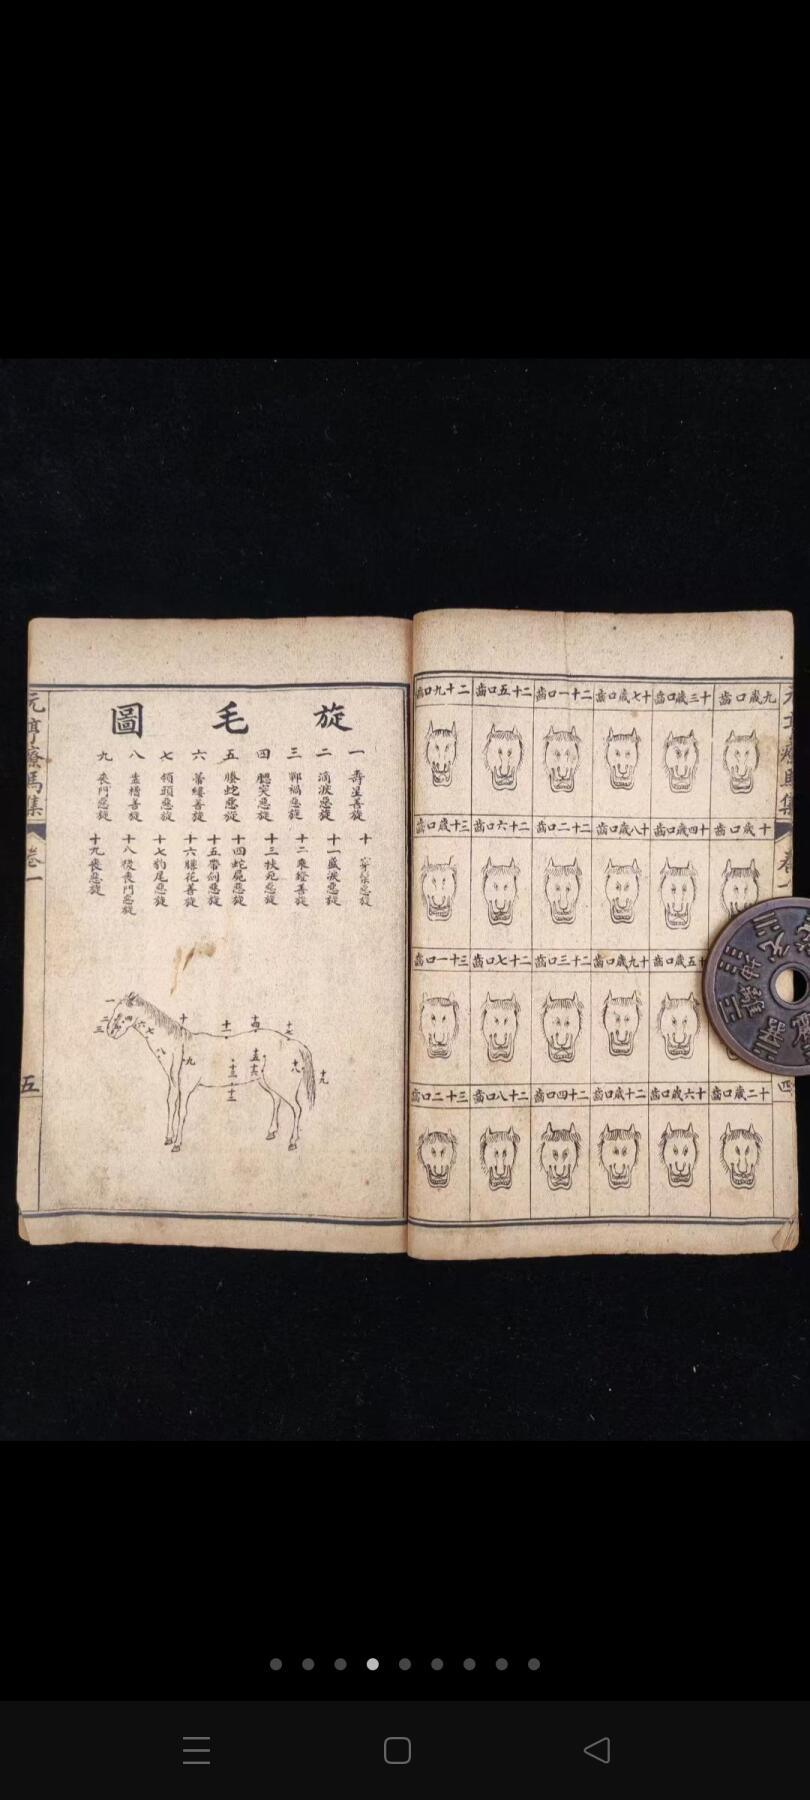 九歲口齒
十三歲口齒
十七歲口齒
二十一口齒
二十五口齒
二十九口齒
十歲口齒
十四歲口齒
十八歲口齒
二十二口齒
二十六口齒
三十歲口齒
十五歲口齒
十九歲口齒
二十三口齒
二十七口齒
三十一口齒
十二歲口齒
十六歲口齒
二十歲口齒
二十四口齒
二十八口齒
三十二口齒
旋毛圖
一 壽星善旋
二 滴淚惡旋
三 禍惡旋
四 騣突惡旋
五 螣蛇惡旋
六 纓善旋
七 領頭惡旋
八 盍榴善旋
九 喪門惡旋
十 惡旋
十一 盛淚惡旋
十二 乘鐙善旋
十三 扶屍惡旋
十四 蛇屍惡旋
十五 帶劍惡旋
十六 騣花善旋
十七 豹尾惡旋
十八 後喪門惡旋
十九 喪惡旋
元亨療馬集
卷一
五